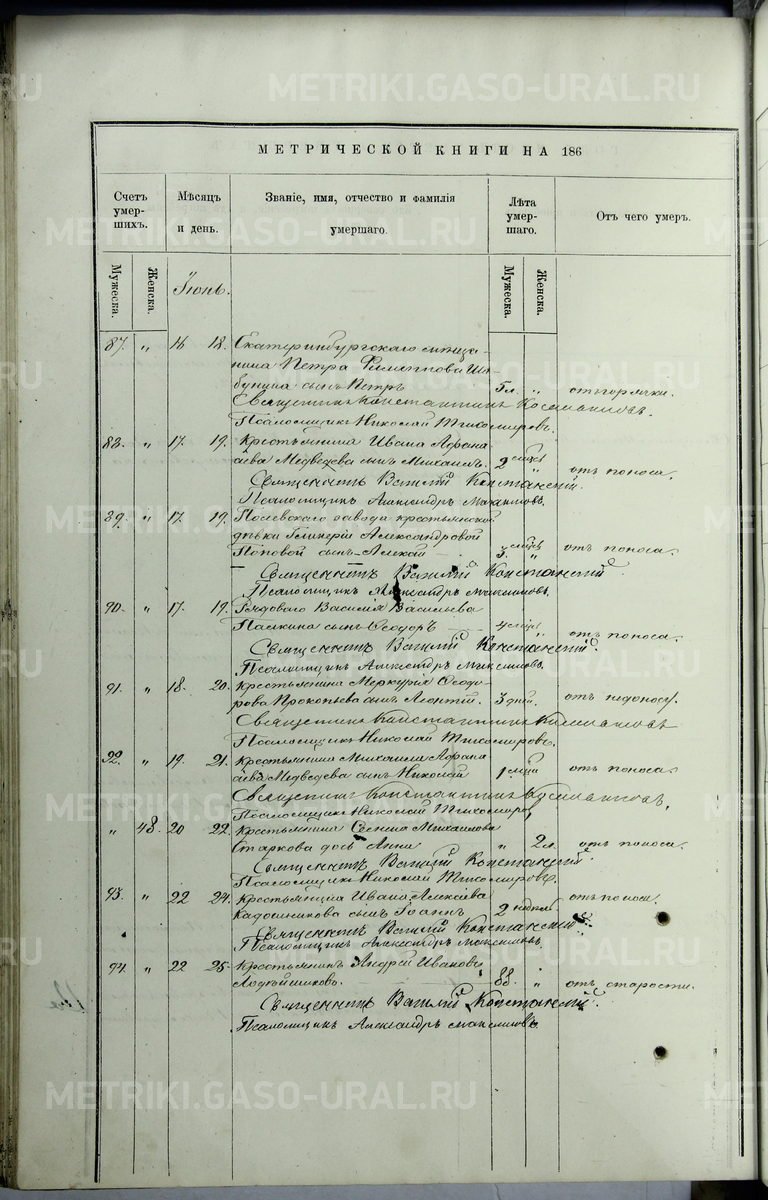 МЕТРИЧЕСКОЙ КНИГИ НА 186
Счетъ умер- шихъ.
Мѣсяцъ и день.
Званіе, имя, отчество и фамилія умершаго.
Лѣта умер- шаго.
Отъ чего умеръ.
Мужеска. Женска. Мужеска. Женска.
Іюнь.
87. „ 16 18. Екатеринбургскаго мѣща-
нина Петра Филиппова
сынъ Петръ 5 л. „ отъ горячки.
Священникъ Константинъ
Псаломщикъ Николай Тихомировъ.
88. „ 17. 19. Крестьянина Ивана Афана-
сьева Медведева сынъ Михаилъ. 2 „ отъ поноса.
Священникъ Василій Констанскій.
Псаломщикъ Александръ Максимовъ.
89. „ 17 19. Полевскаго завода крестьянской
дѣвки Гликеріи Александровой
Поповой сынъ Алексѣй 3 „ отъ поноса.
Священникъ Василій Констанскій.
Псаломщикъ Александръ Максимовъ.
90. „ 17 19. Рядоваго Василія Васильева
Палкина сынъ Ѳеодоръ 4 „ отъ поноса.
Священникъ Василій Констанскій.
Псаломщикъ Александръ Максимовъ.
91. „ 18. 20. Крестьянина Меркурія Ѳеодо-
рова Прокопьева сынъ Леонтій. 3 дней. отъ недоносу.
Священникъ Константинъ
Псаломщикъ Николай Тихомировъ.
92. „ 19. 21. Крестьянина Михаила Афана
сьева Медведева сынъ Николай 1 отъ поноса.
Священникъ Константинъ
Псаломщикъ Николай Тихомировъ
„ 48. 20 22. Крестьянина Семена Михайлова
Старкова дочь Анна „ 2 л. отъ поноса.
Священникъ Василій Констанскій.
Псаломщикъ Николай Тихомировъ.
93. „ 22 24. Крестьянина Ивана Алексѣева
Кадошникова сынъ Іоаннъ 2 недѣль отъ поноса.
Священникъ Василій Констанскій.
Псаломщикъ Александръ Максимовъ.
94. „ 22 25. Крестьянинъ Андрей Ивановъ
88. „ отъ старости.
Священникъ Василій Констанскій.
Псаломщикъ Александръ Максимовъ
METRIKI.GASO-URAL.RU